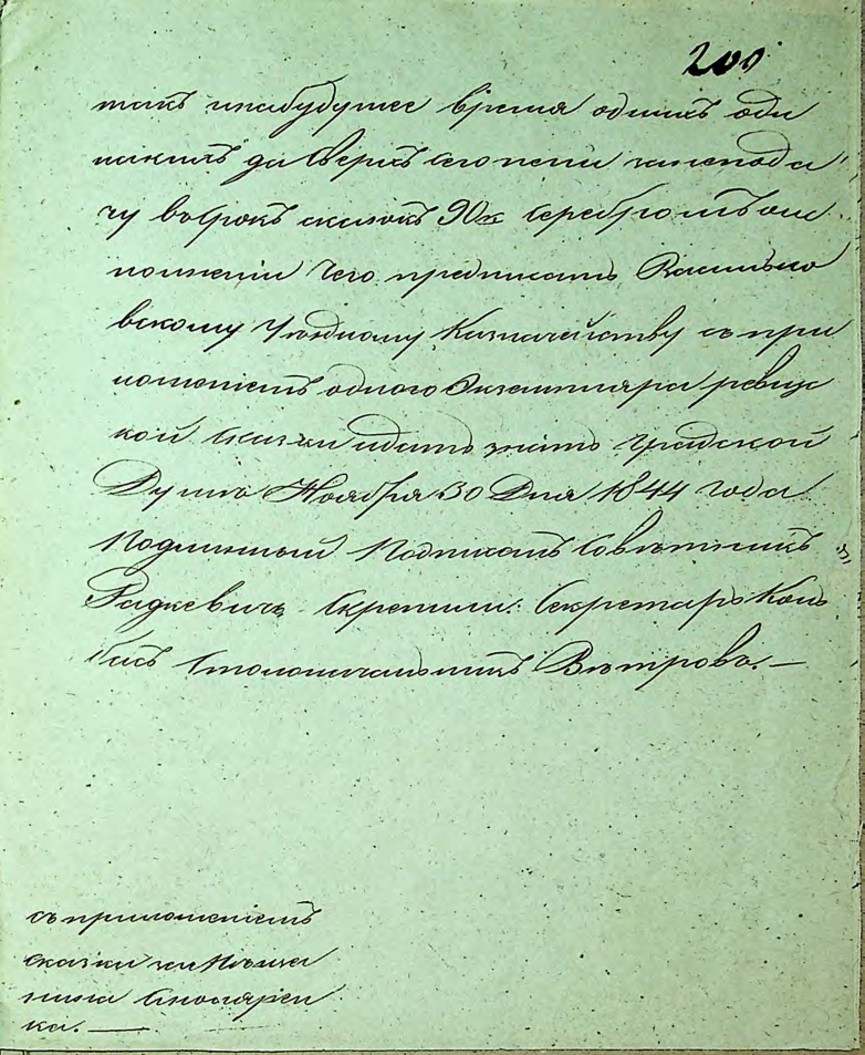 200
такъ инабудущее время однихъ оди
накихъ да Сверхъ сего пени занепода
чу въ Срокъ сказокъ 90к Серебромъ о
полнении Чего предписать Василько
вскому Уѣздному Казначейству съ при
ложениемъ одного Экземпляра ревиз
кой Сказки идать знать Градской
Думѣ Ноября 30 Дня 1844 года
Подлинный Подписалъ Совѣтникъ
Радкевичъ Скрепили: Секретарь
Столоначальникъ Вѣтровъ. —
съ приложениемъ
сказки за Мѣща
нина Пономарен
ка. —